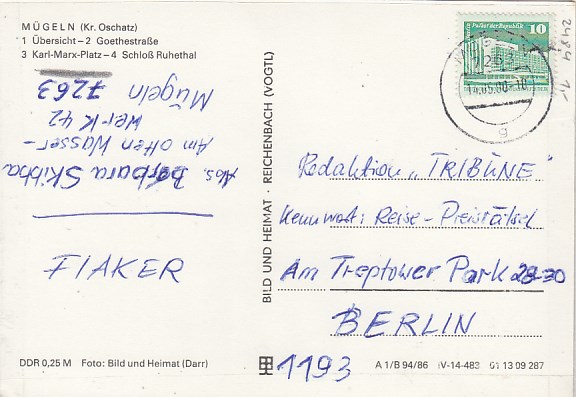 MÜGELN (Kr. Oschatz)
1 Übersicht – 2 Goethestraße
3 Karl-Marx-Platz – 4 Schloß Ruhethal
Abs. Barbara Skibba
Am alten Wasser-
werk 42
Mügeln
7263
FIAKER
BILD UND HEIMAT · REICHENBACH (VOGTL)
Palast der Republik 10
DDR
7263
14.05.90-10
a
2484
Redaktion „TRIBÜNE"
Kennwort: Reise-Preisrätsel
Am Treptower Park 28-30
BERLIN
1193
DDR 0,25 M Foto: Bild und Heimat (Darr)
A 1/B 94/86 IV-14-483 01 13 09 287